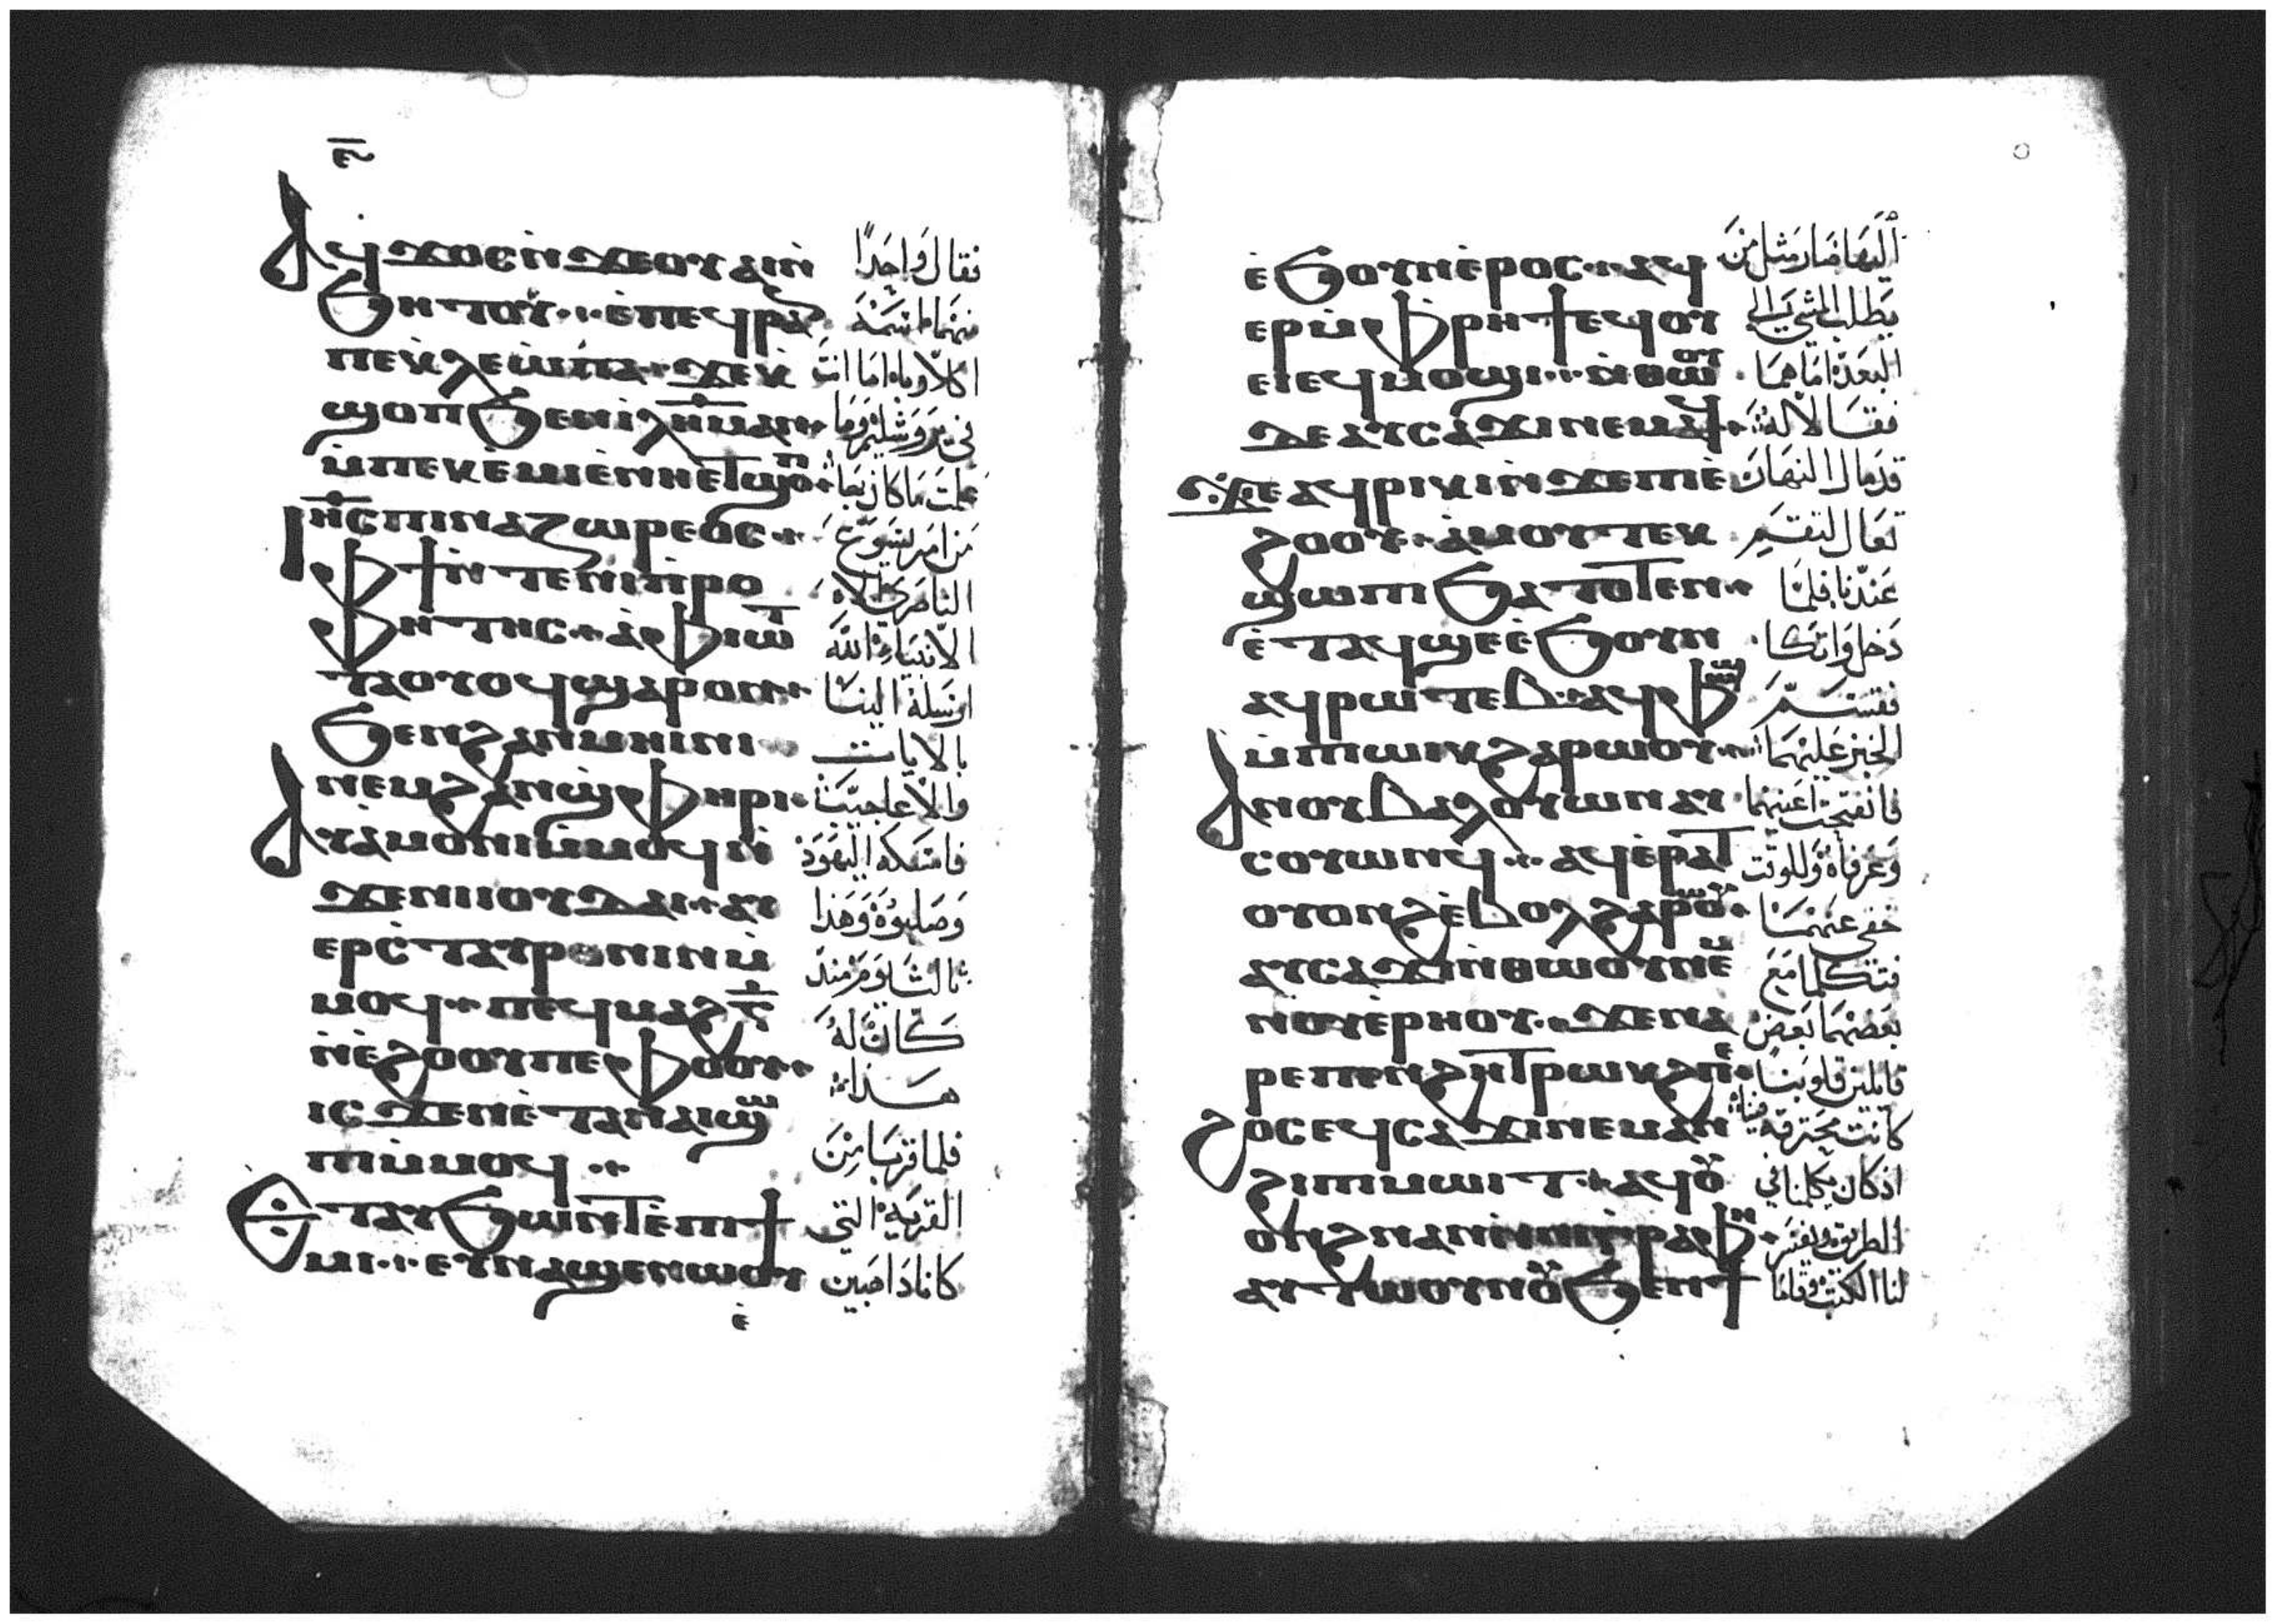 ⲉ̅
Ⲁϥϫⲟⲥⲛ̀ϫⲉⲟⲩⲁⲓⲛ̀ فقال واحدًا
ϧⲏⲧⲟⲩ ⲉ̀ⲡⲉϥⲣⲁ منهما اسمه
ⲡⲉⲕⲗⲉⲱⲡⲁ ϫⲉⲕ اكلاوبا اما انت
ϣⲟⲡϧⲉⲛⲓⲗⲏ̅ⲙⲁⲛ في يروشليم وما
ⲙ̀ⲡⲉⲕⲉ̀ⲙⲓⲉ̀ⲛⲏⲉⲧϣⲟⲡ علمت ما كان بها
Ⲓⲏ̅ⲥⲡⲓⲛⲁⲍⲱⲣⲉⲟⲥ من امر يسوع
ⲫϯⲛ̀ⲧⲉⲛⲓⲡⲣⲟ الناصري الاه
ⲫⲏⲧⲏⲥ ⲁ̀ⲫⲓⲱⲧ الانبياء الله
ⲧⲁⲟⲩⲟϥϣⲁⲣⲟⲛ ارسله الينا
ϧⲉⲛϩⲁⲛⲙⲏⲓⲛⲓ بالايات
ⲛⲉⲙϩⲁⲛϣ̀ⲫⲏⲣⲓ والاعاجيب
Ⲁⲩⲁ̀ⲙⲟⲛⲓⲙ̀ⲙⲟϥⲛ̀ فامسكه اليهود
ϫⲉⲛⲓⲟⲩⲇⲁⲓ ⲁⲩ وصلبوه وهذا
ⲉⲣⲥ̀ⲧⲁⲩⲣⲟⲛⲓⲛⲙ̀ ثالث يوم منذ
ⲙⲟϥ ⲡⲉϥⲙⲁϩⲅ̅ كان له
ⲛ̀ⲉ̀ϩⲟⲟⲩⲡⲉⲫⲟⲟⲩ هذا
ⲓⲥϫⲉⲛⲉ̀ⲧⲁⲛⲁⲓϣⲱ فلما قربا من
ⲡⲓⲙ̀ⲙⲟϥ
Ⲉⲧⲁⲩϧⲱⲛⲧⲉ̀ⲡⲓϯ القرية التي
ⲙⲓ ⲉⲩⲛⲁϣⲉⲛⲱⲟⲩ كانا ذاهبين
ⲉ̀
ⲉ̀ϧⲟⲩⲛⲉ̀ⲣⲟⲥ ⲁϥ اليها صار مثل من
ⲉⲣⲙ̀ⲫⲣⲏϯⲉϥⲟⲩ يطلب المشي الى
ⲉⲓⲉϥⲙⲟϣⲓ ⲛ̀ⲑⲱⲟⲩ البعد اما هما
ϫⲉⲁⲩⲥⲁϫⲓⲛⲉⲙⲁϥ فقالا له
ϫⲉⲁϥⲣⲓⲕⲓⲛ̀ϫⲉⲡⲓⲉ̀ قد مال النهار
ϩⲟⲟⲩ ⲁ̀ⲙⲟⲩⲧⲉⲕ تعال لتقيم
ϣⲱⲡⲓϧⲁⲧⲟⲧⲉⲛ عندنا فلما
ⲉ̀ⲧⲁϥϣⲉⲉ̀ϧⲟⲩⲛ دخل واتكا
ⲁϥⲣⲱⲧⲉⲃ ⲁϥⲫⲱϣ فقسم
ⲙ̀ⲡⲱⲓⲕϩⲁⲣⲱⲟⲩ الخبز عليهما
Ⲁⲛⲟⲩⲃⲁⲗⲟⲩⲱⲛⲁⲩ فانفتحت اعينهما
ⲥⲟⲩⲱⲛϥ ⲁϥⲉ̀ⲣⲁⲧ وعرفاه وللوقت
ⲟⲩⲟⲛϩⲉ̀ⲃⲟⲗϩⲁⲣⲱⲟⲩ خفي عنهما
ⲁⲩⲥⲁϫⲓⲛ̀ⲑⲱⲟⲩⲛⲉⲙ فتكلما مع
ⲛⲟⲩⲉ̀ⲣⲏⲟⲩ ϫⲉⲛⲁ بعضهما بعض
ⲣⲉⲡⲉⲛϩⲏⲧⲣⲱⲕϩⲡⲉ قايلين قلوبنا
ϩⲟⲥⲉϥⲥⲁϫⲓⲛⲉⲙⲁⲛ كانت محترقة فينا
ϩⲓⲡⲓⲙⲱⲓⲧ ⲁϥⲟⲩ اذ كان يكلمنا في
ⲟⲛϩⲛⲁⲛⲛ̀ⲛⲓⲅ̀ⲣⲁⲫⲏ الطريق ويفسر
ⲁⲩⲧⲱⲟⲩⲛⲟⲩϧⲉⲛϯ لنا الكتب وقاما